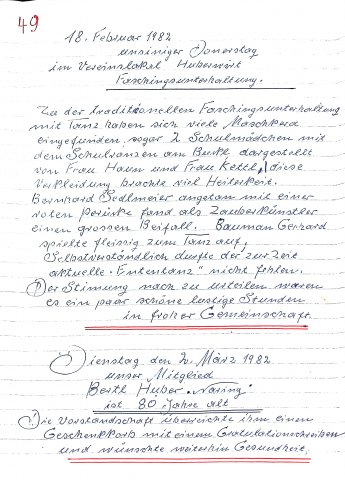 49
18. Februar 1982
unsiniger Donerstag
im Vereinslokal Huberwirt
Faschingsunterhaltung.
Zu der traditionellen Faschingsunterhaltung
mit Tanz haben sich viele Maschkera
eingefunden, sogar 2 Schulmädchen mit
dem Schulranzen am Buckl dargestellt
von Frau Haun und Frau Kettl, diese
Verkleidung brachte viel Heiterkeit.
Bernhard Sedlmeier angetan mit einer
roten Perücke fand als Zauberkünstler
einen grossen Beifall. Bauman Gerhard
spielte fleissig zum Tanz auf,
Selbstverständlich durfte der zur Zeit
aktuelle „Ententanz" nicht fehlen.
Der Stimung nach zu urteilen waren
es ein paar schöne lustige Stunden
in froher Gemeinschaft.
Dienstag den 2. März 1982
unser Mitglied
Bertl Huber
ist 80 Jahre alt
Die Vorstandschaft überreichte ihm einen
Geschenkkorb mit einem Gratulationschreiben
und wünschte weiterhin Gesundheit.